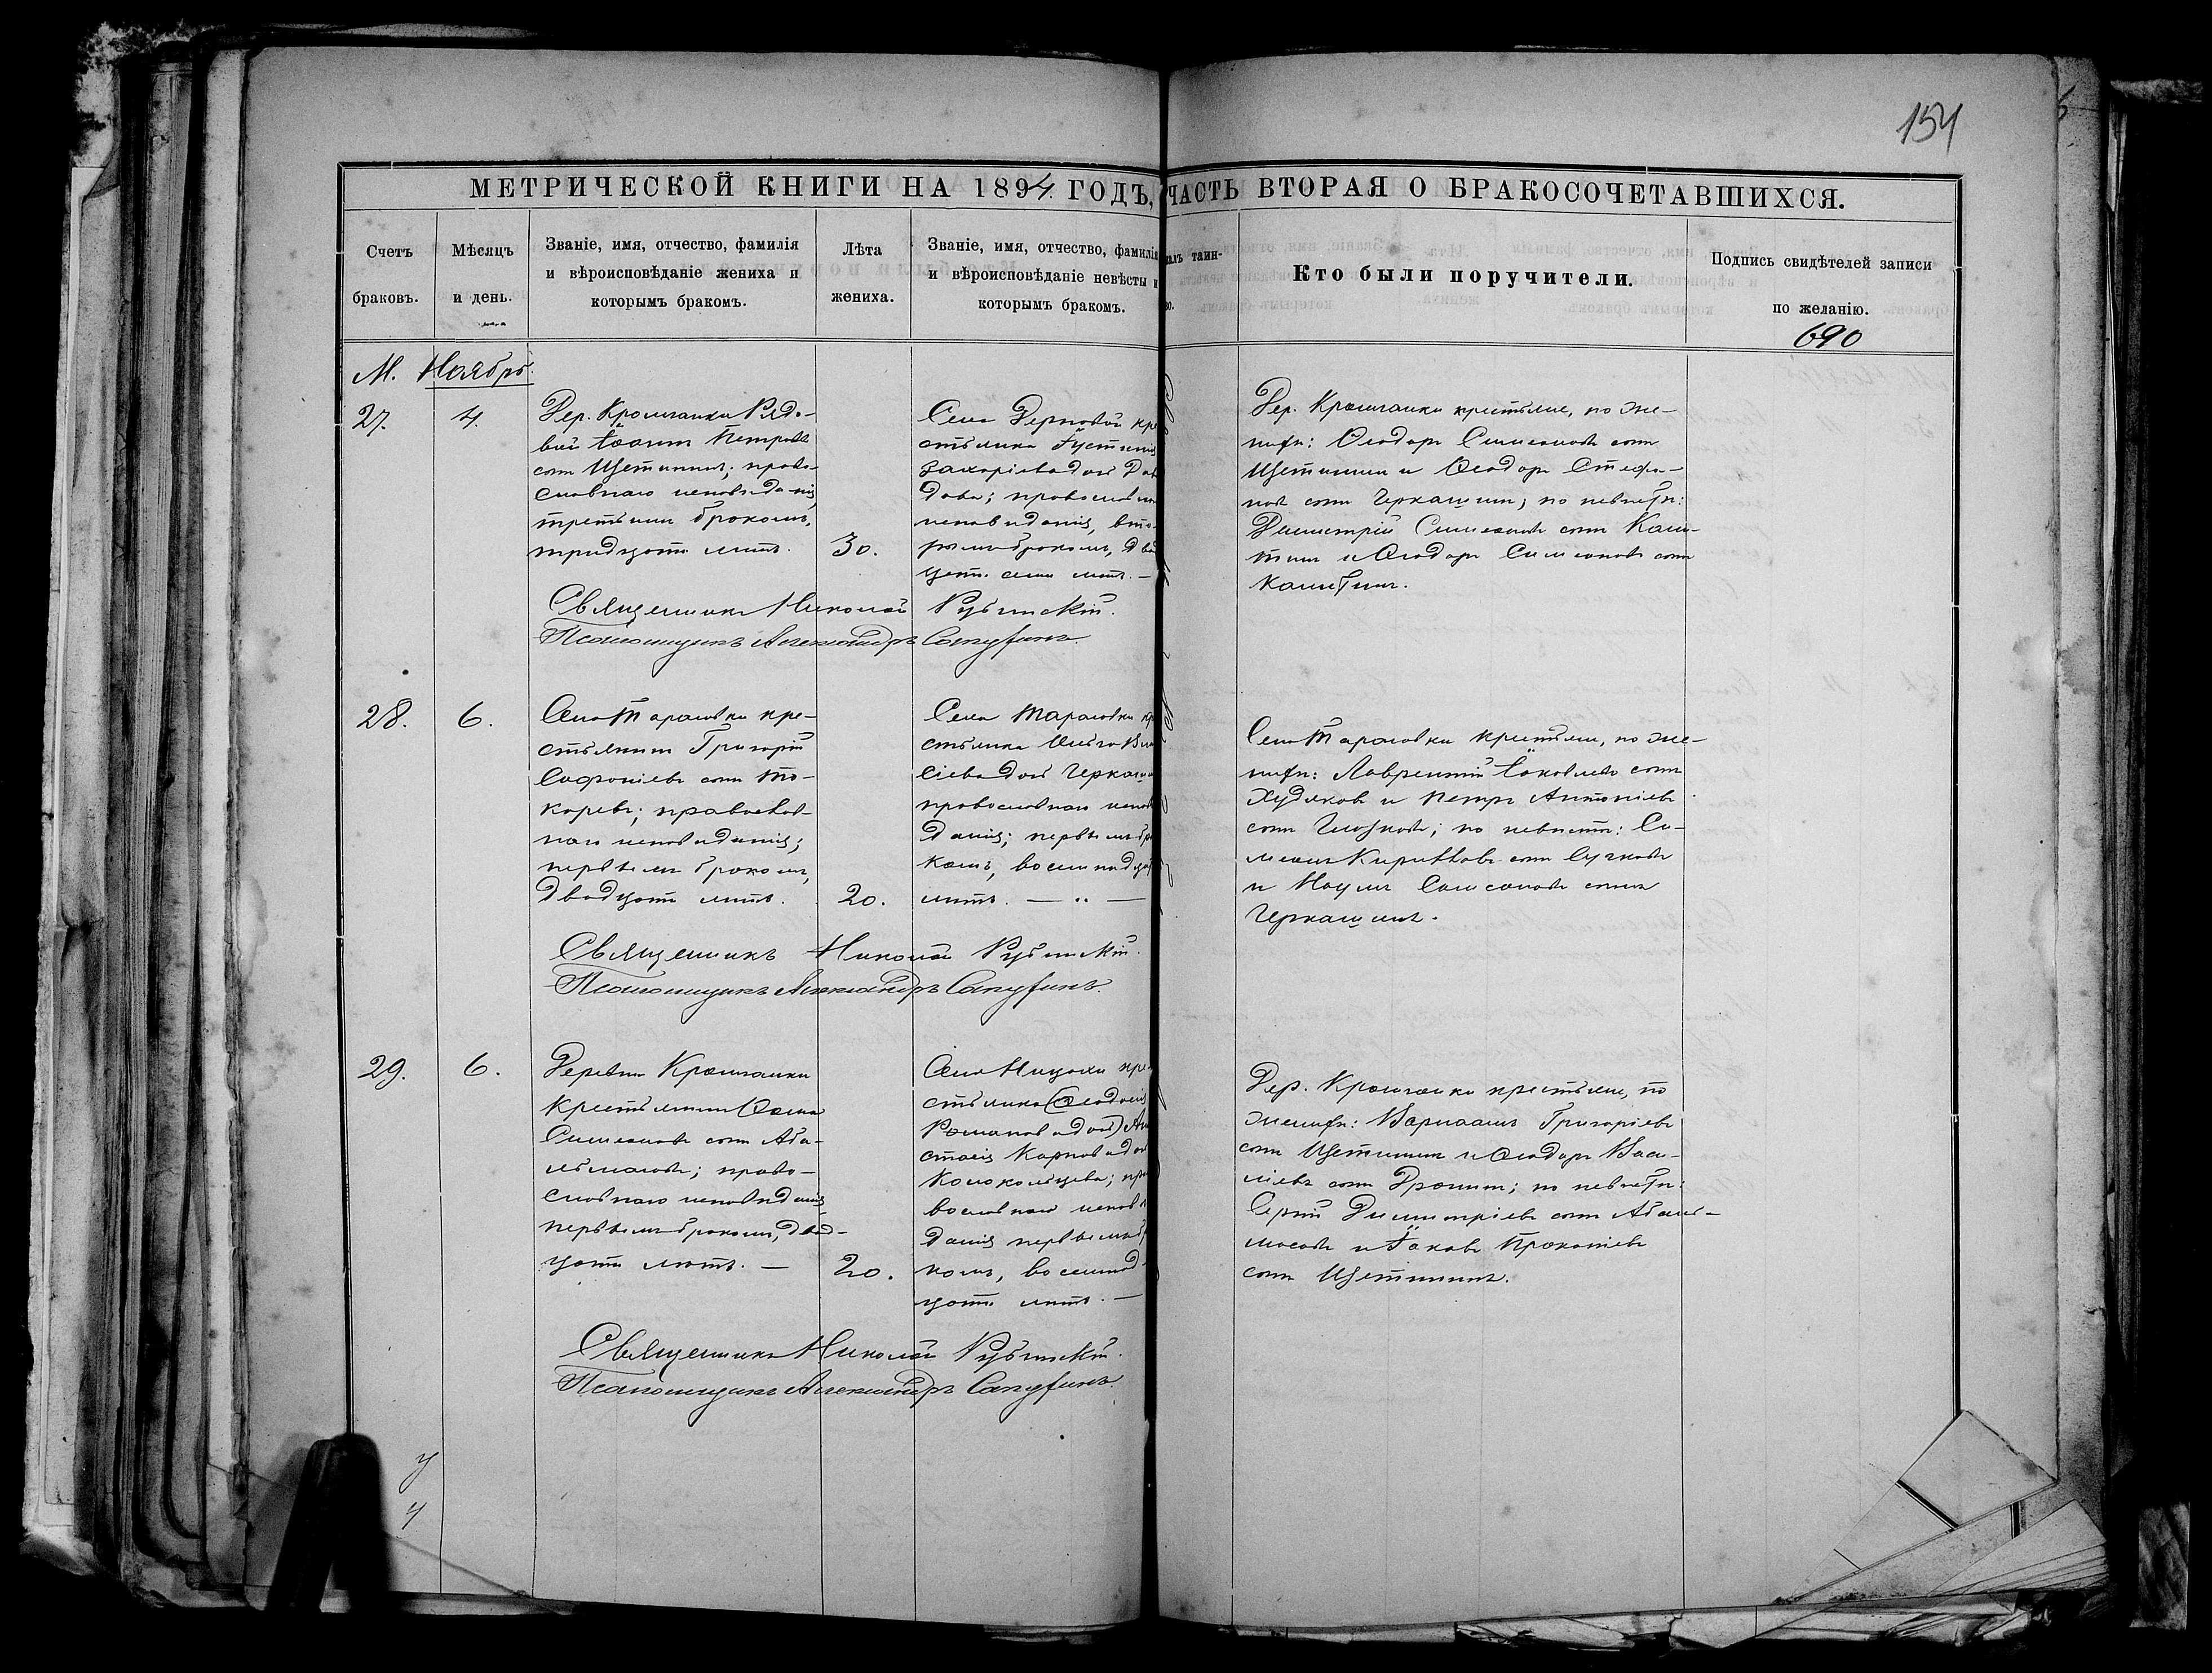 154
МЕТРИЧЕСКОЙ КНИГИ НА 1894 ГОДЪ, ЧАСТЬ ВТОРАЯ О БРАКОСОЧЕТАВШИХСЯ.
Счетъ браковъ.
Мѣсяцъ и день.
Званіе, имя, отчество, фамилія
и вѣроисповѣданіе жениха и
которымъ бракомъ.
Лѣта
жениха.
Званіе, имя, отчество, фамилія
и вѣроисповѣданіе невѣсты и
которымъ бракомъ.
таин-
Кто были поручители.
Подпись свидѣтелей записи
по желанію.
690
М. Ноябрь.
27.
4.
Дер. Рядо-
вой Іоаннъ Петровъ
сынъ Щетининъ; право-
славнаго исповѣданія,
третьимъ бракомъ,
тридцати лѣтъ.
30.
Села кре
стьянка Іустинія
Захаріева дочь Дав
дова; православна
исповѣданія, вто-
рымъ бракомъ, два
цати семи лѣтъ. —
Дер. крестьяне, по же-
нихѣ: Ѳеодоръ Симеоновъ сынъ
Щетининъ и Ѳеодоръ Стефа-
новъ сынъ Черкашинъ; по невѣстѣ:
Димитрій Симеоновъ сынъ
и Ѳеодоръ Симеоновъ сынъ
Священникъ Николай
Псаломщикъ Александръ
28.
6.
Села Тарасовки кре-
стьянинъ Григорій
Софроніевъ сынъ То-
каревъ; православ-
наго исповѣданія;
первымъ бракомъ,
двадцати лѣтъ.
20.
Села Тарасовки кр
стьянка Ольга Ва
сіева дочь Черкаши
православнаго испов
данія; первымъ бра
комъ, восемнадцат
лѣтъ. — „ —
Села Тарасовки крестьяне, по же-
нихѣ: Лаврентій Іаковлевъ сынъ
Худяковъ и Петръ Антоніевъ
сынъ Глазковъ; по невѣстѣ: Си-
меонъ Кирилловъ сынъ Сучковъ
и Наумъ Самсоновъ сынъ
Черкашинъ.
Священникъ Николай
Псаломщикъ Александръ
29.
6.
Деревни
Крестьянинъ Ѳома
Симеоновъ сынъ Аба-
лмасовъ; право-
славнаго исповѣданія,
первымъ бракомъ, двад-
цати лѣтъ. —
20.
Села Ницахи кре-
стьянка (Ѳеодосія
Романова дочь) Ана
стасія Карпова доч
Колокольцева; пра
вославнаго исповѣ
данія первымъ бра
комъ, восемнад-
цати лѣтъ. —
Дер. крестьяне, по
женихѣ: Варлаамъ Григоріевъ
сынъ Щетининъ и Ѳеодоръ Васи-
ліевъ сынъ Дронинъ; по невѣстѣ:
Сергій Димитріевъ сынъ Абал-
масовъ и Іаковъ Прокопіевъ
сынъ Щетининъ.
Священникъ Николай
Псаломщикъ Александръ